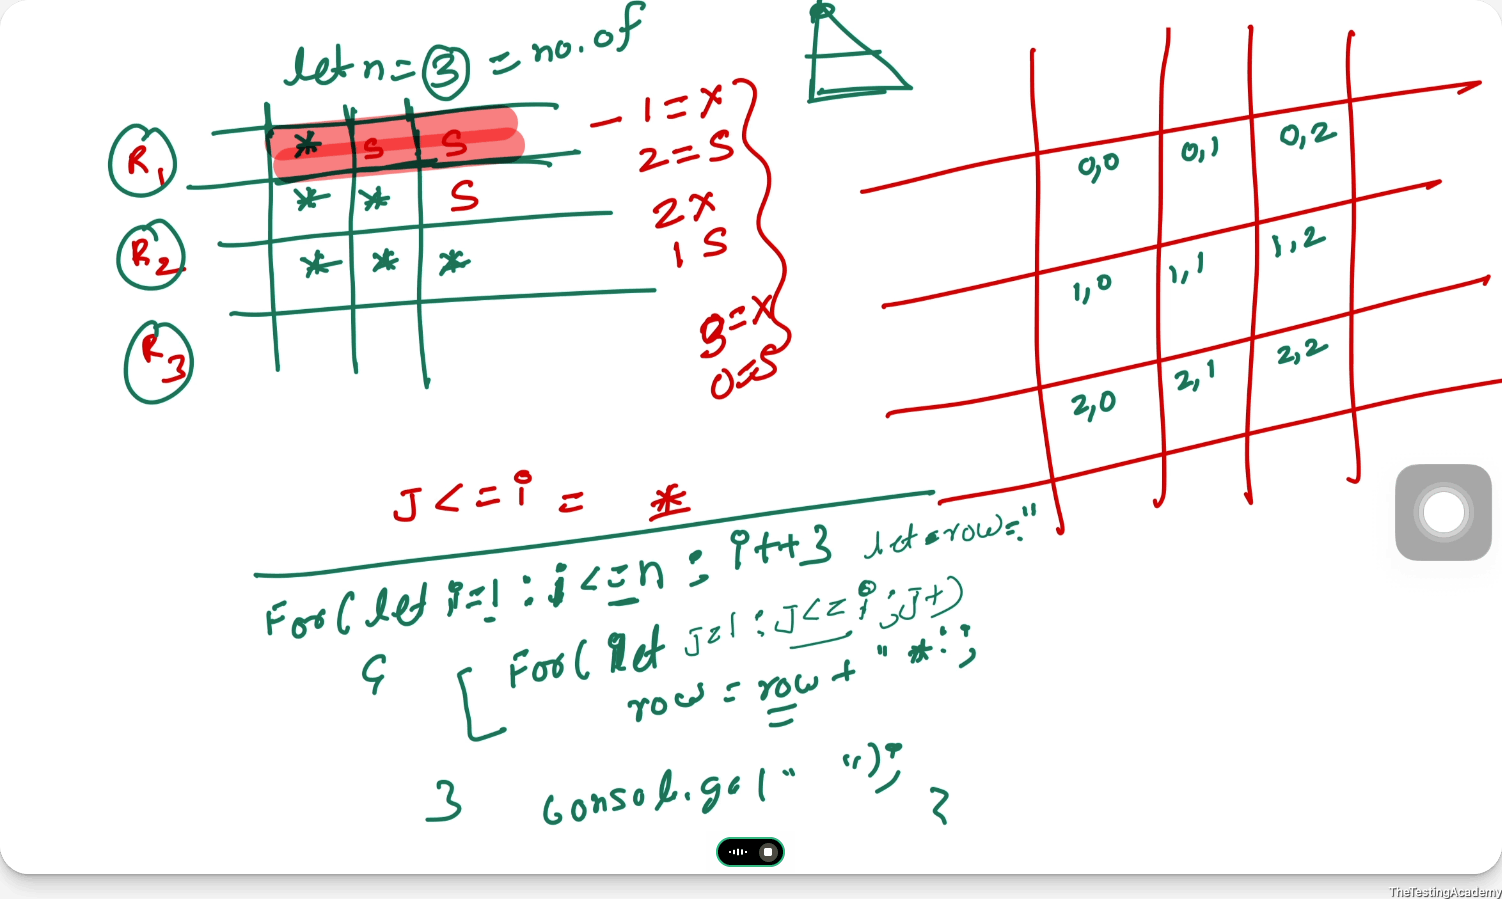 let n = 3 = no. of
R1 * S S
* * S
R2 * * *
R3
- 1 = X
2 = S
2 X
1 S
3 = X
0 = S
0,0 0,1 0,2
1,0 1,1 1,2
2,0 2,1 2,2
J <= i = *
For( let i=1 ; i <= n ; i++ } let row = "
{ [ For( let J=1 ; J <= i ; J+)
row = row + "*";
} Consol. (" ");
}
TheTestingAcademy